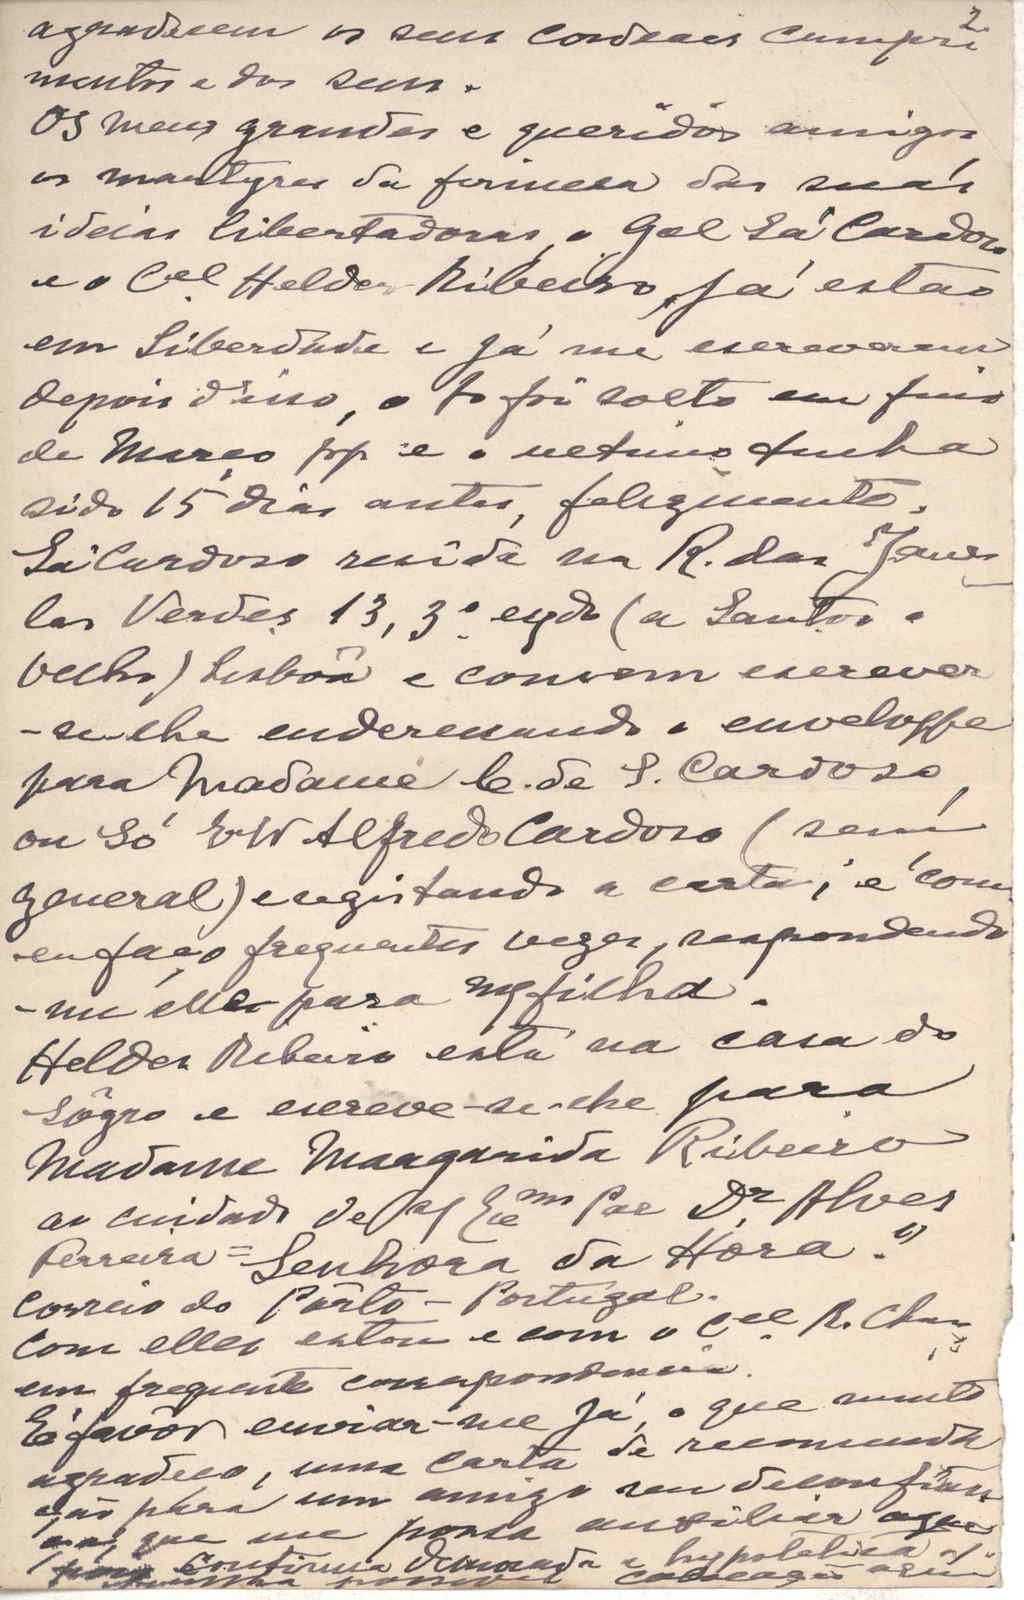 2
agradecem os seus cordeaes cumpri
mentos e dos seus.
Os meus grandes e queridos amigos
os martyres da firmesa das suas
ideias libertadoras, o Gal Sá Cardoso
e o Cel Helder Ribeiro, já estão
em liberdade e já me escreveram
depois d'isso, o 1º foi solto em fins
de Março pp e o ultimo tinha
sido 15 dias antes, felizmente.
Sá Cardoso reside na R. das Janel
las Verdes 13, 3º esqdo (a Santos o
velho) Lisbôa e convem escrever
-se-lhe enderessando o enveloppe
para Madame C. de S. Cardoso
ou só Alfredo Cardoso (sem
general) e registando a carta; é como
eu faço frequentes vezes, respondendo
-me elle para mª filha.
Helder Ribeiro está na casa do
sôgro e escreve-se-lhe para
Madame Margarida Ribeiro
ao cuidado de Exmo Pae Dr Alves
Ferreira = Senhora da Hora."
Correio do Pôrto - Portugal.
Com elles estou e com o Cel R. Chaves
em frequente correspondencia.
É favôr enviar-me já, o que muito
agradeço, uma carta de recomenda
ção para um amigo seu de confian
que me possa auxiliar
continua demorada e hypotetica a
collocação